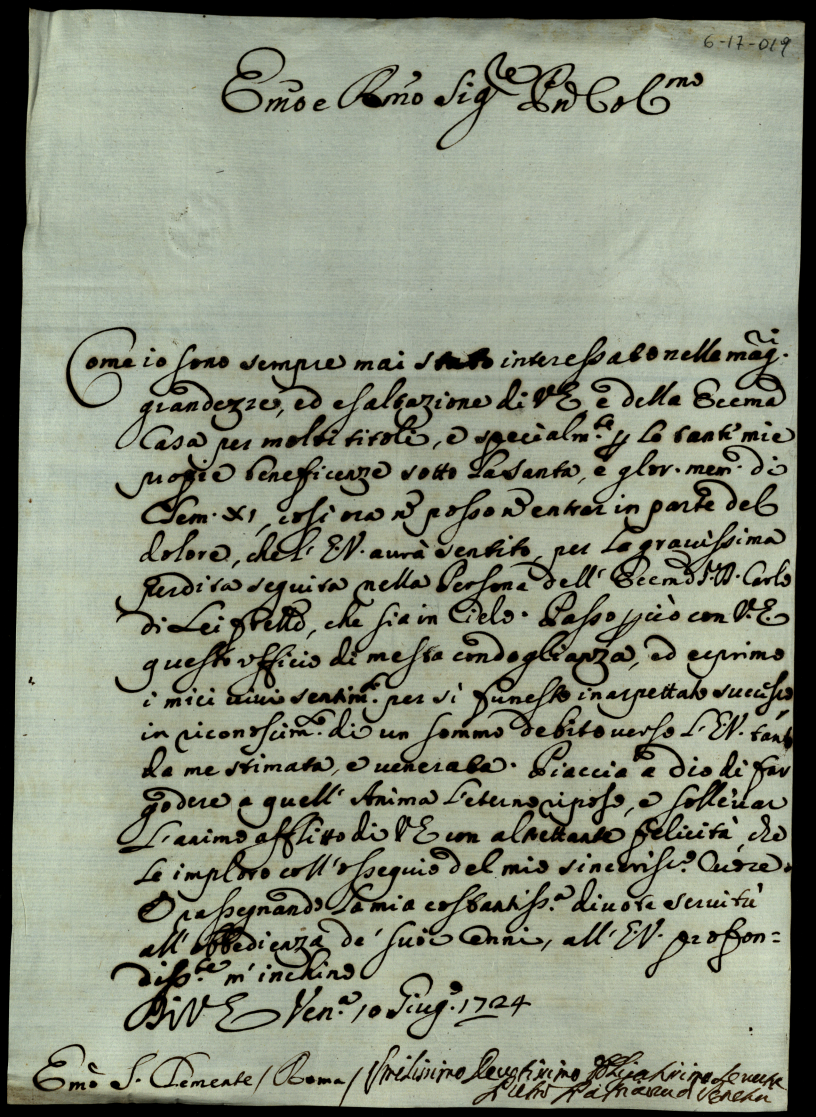 6-17-019
Emo e Rmo Sig.re Pnē Colmo
Come io sono sempre mai stato interessato nelle mag.ri
grandezze, ed esaltazione di VE e della Eccema
Casa per molti titoli, e specialm.te p le tante mie
beneficenze sotto la santa, e glor. mem. di
Clem. XI, così ora nõ posso nõ entrar in parte del
dolore, che l'E.V. avrà sentito, per la gravissima
perdita seguita nella Persona dell' Eccemo D. Carlo
di Lei frello, che sia in Cielo. Passo p ciò con V.E.
questo officio di mesta condoglianza, ed esprimo
i miei vivi sentim.ti per sì funesto inaspettato successo
in riconoscim.to di un sommo debito verso l'E.V. tanto
da me stimata, e venerata. Piaccia a dio di far
godere a quell' Anima l'eterno riposo, e sollevar
l'animo afflitto di VE con altrettante felicità, che
le imploro coll'ossequio del mio sinceriss.o Cuore.
E rassegnando la mia costantiss.a divota servitù
all'obbedienza de' suoi Cenni, all'E.V. profon=
diss.te m'inchino
Di VE Ven.a 10 Giug.o 1724
Emō S. Clemente / Roma / Umilissimo Devotissimo Obligatissimo Servitore
Pietro Patriarca di Venezia